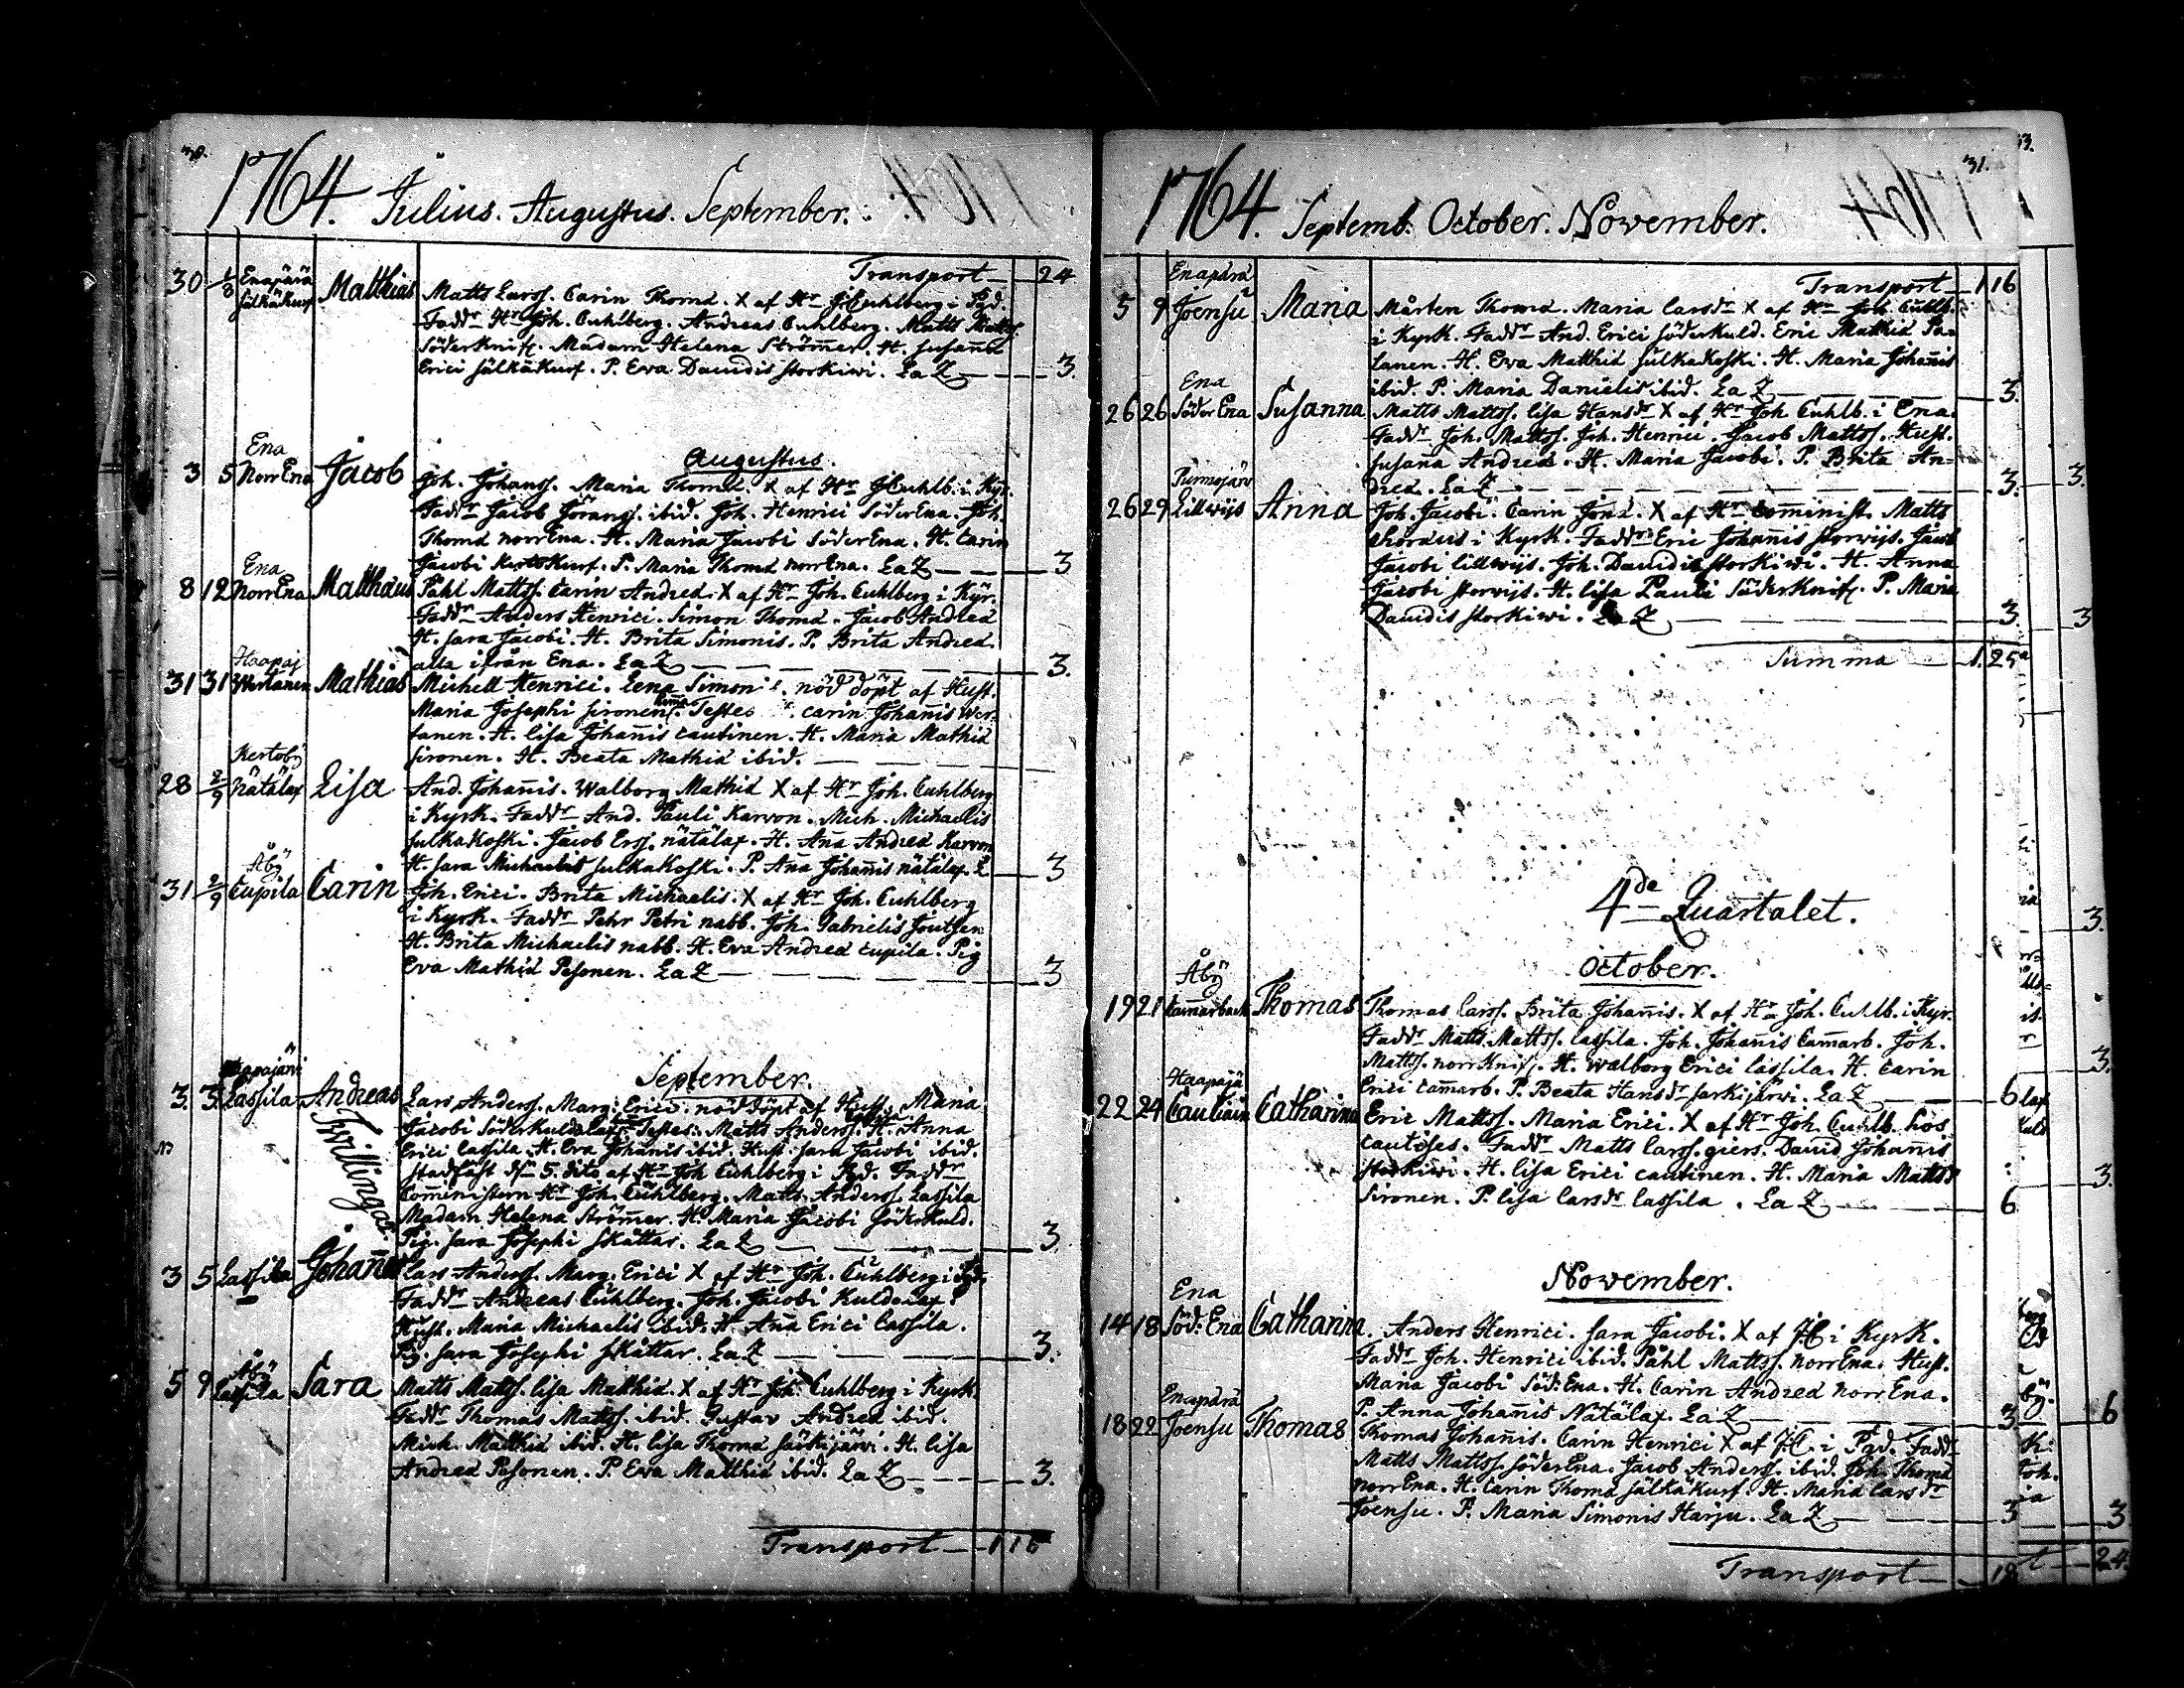 30.
1764. Julius. Augustus. September.
Transport — 24
30 1/8 Enapärä Sälkäkurf Matthias Matts Larss. Carin Thomæ. X af Hr J Cuhlberg i Pgd.
Faddr Hr Joh. Cuhlberg. Andreas Cuhlberg. Matts Mattss.
Söderknif. Madam Helena Strömer. H. Susanna
Erici Sälkäkurf. P. Eva Davidis storkiwi. LaZ — 3.
Augustus.
3 5 Ena NorrEna Jacob Joh. Johanss. Maria Thomæ. X af Hr J Cuhlb. i Kyr.
Faddr Jacob Görans. ibid. Joh. Henrici SöderEna. Joh.
Thomæ norrEna. H. Maria Jacobi SöderEna. H. Carin
Jacobi Kurf. P. Maria Thomæ norrEna. LaZ — 3
8 12 Ena NorrEna Matthæus Påhl Mattss. Carin Andreæ. X af Hr Joh. Cuhlberg i Kyr.
Faddr Anders Henrici. Simon Thomæ. Jacob Andreæ
H. Sara Jacobi. H. Brita Simonis. P. Brita Andreæ.
alla ifrån Ena. LaZ — 3.
31 31 Haapaj Wertanen Mathias Michell Henrici. Lena Simonis. nöd döpt af Hust.
Maria Josephi Sironen. Testes. Carin Johañis Wer-
tanen. H. Lisa Johañis Cautinen. H. Maria Mathiæ
Sironen. H. Beata Mathiæ ibid. —
28 2/9 Kertoby Nätälax Lisa And. Johañis. Walborg Mathiæ X af Hr Joh. Cuhlberg
i Kyrk. Faddr And. Pauli Karvon. Mich. Michaelis
Julkakoski. Jacob Erss. nätälax. H. Aña Andreæ Karvon
H. Sara Michaelis Julkakoski. P. Aña Johañis nätälax. L — 3
31 2/9 Åby Cupila Carin Joh. Erici. Brita Michaelis. X af Hr Joh. Cuhlberg
i Kyrk. Faddr Pehr Petri nabb. Joh. Gabrielis Joutsen
H. Brita Michaelis nabb. H. Eva Andreæ Cupila. Pig
Eva Mathiæ Pesonen. LaZ — 3
September.
3. 3. Haapajärvi Lassila Andreas Lars Anderss. Marg: Erici. nöd döpt af Hust. Maria
Jacobi Söderkulda. Testes: Matts Anderss. H. Anna
Erici Lassila. H. Eva Johañis ibid. Hust. Sara Jacobi ibid.
stadfäst dn 5. dito af Hr Joh Cuhlberg i Pgd. Faddr
Cominstern Hr Joh. Cuhlberg. Matts Anderss. Lassila
Madam Helena Strömer. H. Maria Jacobi Söderkuld.
Pig. Sara Josephi Skåttar. LaZ — 3
Twillingar
3 5 Lassila Johañes Lars Anderss. Marg. Erici X af Hr Joh. Cuhlberg i Pgd.
Faddr Andreas Cuhlberg. Joh. Jacobi
Hust. Maria Michaelis ibid. H. Aña Erici Lassila.
Pig. Sara Josephi Skåttar. LaZ — 3.
5 9 Åby Lassila Sara Matts Mattss. Lisa Mathiæ. X af Hr Joh. Cuhlberg i Kyrk.
Faddr Thomas Mattss. ibid. Gustav Andreæ ibid.
Mich. Matthiæ ibid. H. Lisa Thomæ Särkijärvi. H. Lisa
Andreæ Pesonen. P. Eva Matthiæ ibid. LaZ — 3.
Transport — 1 16
31.
1764. Septemb. October. November.
Transport — 1 16
5 9 Enapärä Joensu Maria Mårten Thomæ. Maria Larsdr X af Hr Joh. Cuhlb.
i Kyrk. Faddr And. Erici Söderkuld. Eric Mathiæ Pa-
tanen. H. Eva Matthiæ Julkakoski. H. Maria Johañis
ibid. P. Maria Danielis ibid. LaZ — 3.
26 26 Ena Söder Ena Susanna Matts Mattss. Lisa Hansdr X af Hr Joh Cuhlb. i Ena.
Faddr Joh. Mattss. Joh. Henrici. Jacob Mattss. Hust.
Susaña Andreæ. H. Maria Jacobi. P. Brita An-
dreæ. LaZ — 3.
26 29 Purmojärv Lillwijs Anna Joh. Jacobi. Carin Jonæ. X af Hr Cominist. Matts
Choræus i Kyrk. Faddr Eric Johañis storwijs. Jacob
Jacobi Lillwijs. Joh. Davidis storkiwi. H. Anna
Jacobi storwijs. H. Lisa Pauli Söderknif. P. Maria
Davidis storkiwi. LaZ — 3.
Summa — 1. 25
4de Quartalet.
October.
19 21 Åby Camarback Thomas Thomas Larss. Brita Johañis. X af Hr Joh. Cuhlb. i Kyr.
Faddr Matts Mattss. Lassila. Joh. Johañis Camarb. Joh.
Mattss. norrknif. H. Walborg Erici Lassila. H. Carin
Erici Camarb. P. Beata Hansdr Sarkijärwi. LaZ — 6
22 24 Haapajä Cautiain Catharina Eric Mattss. Maria Erici. X af Hr Joh. Cuhlb. hos
Cautises. Faddr Matts Larss. giers. David Johañis
storkiwi. H. Lisa Erici Cautinen. H. Maria Matts
Sironen. P. Lisa Larsdr Lassila. LaZ — 6
November.
14 18 Ena Söd: Ena Catharina. Anders Henrici. Sara Jacobi. X af JC i Kyrk.
Faddr Joh. Henrici ibid. Påhl Mattss. NorrEna. Hust.
Maria Jacobi Söd: Ena. H. Carin Andreæ NorrEna.
P. Anna Johañis Nätälax. LaZ — 3
18 22 Enapärä Joensu Thomas Thomas Johañis. Carin Henrici X af JC. i Pgd. Faddr
Matts Mattss. SöderEna. Jacob Anderss. ibid. Joh. Thomæ
NorrEna. H. Carin Thomæ Sälkäkurf. H. Maria Larsdr
Joensu. P. Maria Simonis Harju. LaZ — 3
Transport — 18